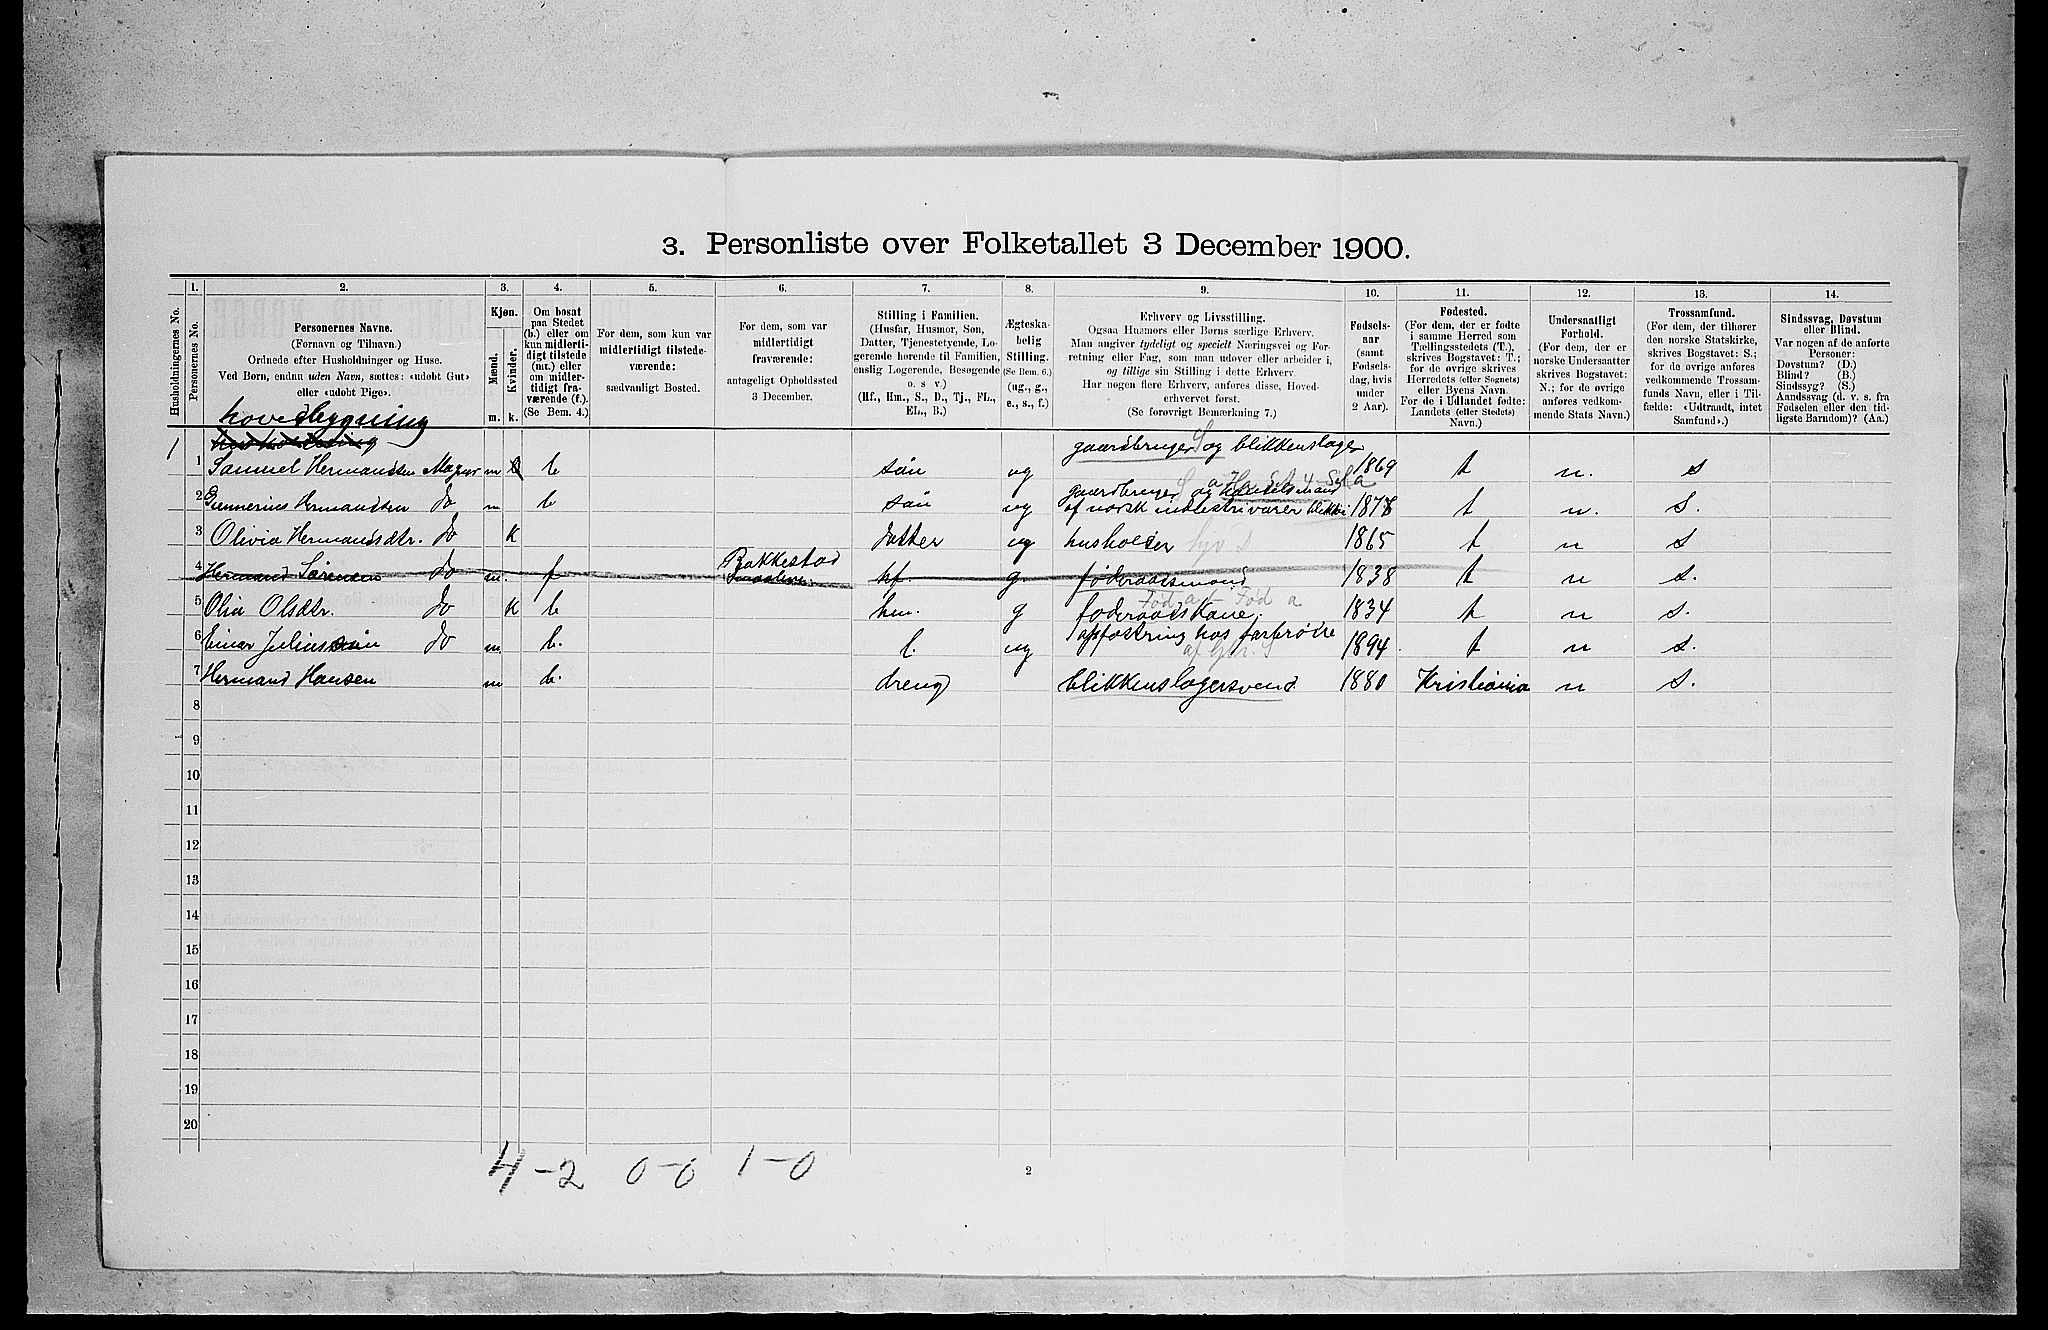 3. Personliste over Folketallet 3 December 1900.
Husholdningernes No.
1. Personernes No.
2. Personernes Navne.
(Fornavn og Tilnavn.)
Ordnede efter Husholdninger og Huse.
Ved Børn, endnu uden Navn, sættes: «udøbt Gut»
eller «udøbt Pige».
3. Kjøn.
Mænd. Kvinder.
m. k.
4. Om bosat
paa Stedet
(b.) eller om
kun midlerti-
digt tilstede
(mt.) eller
om midler-
tidigt fra-
værende (f.).
(Se Bem. 4.)
5. For dem, som kun var
midlertidigt tilstede-
værende:
sædvanligt Bosted.
6. For dem, som var
midlertidigt
fraværende:
antageligt Opholdssted
3 December.
7. Stilling i Familien.
(Husfar, Husmor, Søn,
Datter, Tjenestetyende, Lo-
gerende hørende til Familien,
enslig Logerende, Besøgende
o. s. v.)
(Hf., Hm., S., D., Tj., FL.,
EL., B.)
8. Ægteska-
belig
Stilling.
(Se Bem. 6.)
(ug., g.,
e., s., f.)
9. Erhverv og Livsstilling.
Ogsaa Husmors eller Børns særlige Erhverv.
Man angiver tydeligt og specielt Næringsvei og For-
retning eller Fag, som man udøver eller arbeider i,
og tillige sin Stilling i dette Erhverv.
Har nogen flere Erhverv, anføres disse, Hoved-
erhvervet først.
(Se forøvrigt Bemærkning 7.)
10. Fødsels-
aar
(samt
Fødsels-
dag, hvis
under
2 Aar).
11. Fødested.
(For dem, der er fødte
i samme Herred som
Tællingsstedets (T.),
skrives Bogstavet: T.;
for de øvrige skrives
Herredets (eller Sognets)
eller Byens Navn.
For de i Udlandet fødte:
Landets (eller Stedets)
Navn.)
12. Undersaatligt
Forhold.
(For dem, der er
norske Undersaatter
skrives Bogstavet:
N.; for de øvrige
anføres vedkom-
mende Stats Navn.)
13. Trossamfund.
(For dem, der tilhører
den norske Statskirke,
skrives Bogstavet: S.;
for de øvrige anføres
vedkommende Trossam-
funds Navn, eller i Til-
fælde: «Udtraadt, intet
Samfund».)
14. Sindssvag, Døvstum
eller Blind.
Var nogen af de anførte
Personer:
Døvstum? (D.)
Blind? (B.)
Sindssyg? (S.)
Aandssvag (d. v. s. fra
Fødselen eller den tid-
ligste Barndom)? (Aa.)
hovedbygning
1
1 Samuel Hermandsen Magnus m b søn ug gaardbruger og blikkenslager 1869 t n. s
2 Gunnerius Hermandsen do m b søn ug gaardbruger og Handelsmand af norsk industrivarer 1878 t n. s.
3 Olivia Hermandsdtr. do k datter ug husholder 1865 t n s
4 Hermand Sørensen do m. f Bakkestad hf. g. føderaadsmand 1838 t n s.
5 Olia Olsdtr. do k b hm. g føderaadskone. 1834 t n s.
6 Einar Juliussøn do m b. l. ug opfostring hos farbrødre 1894. t n s.
7 Hermand Hansen m b. dreng blikkenslagersvend. 1880 Kristiania n s.
8
9
10
11
12
13
14
15
16
17
18
19
20
4-2 0-0 1-0
2